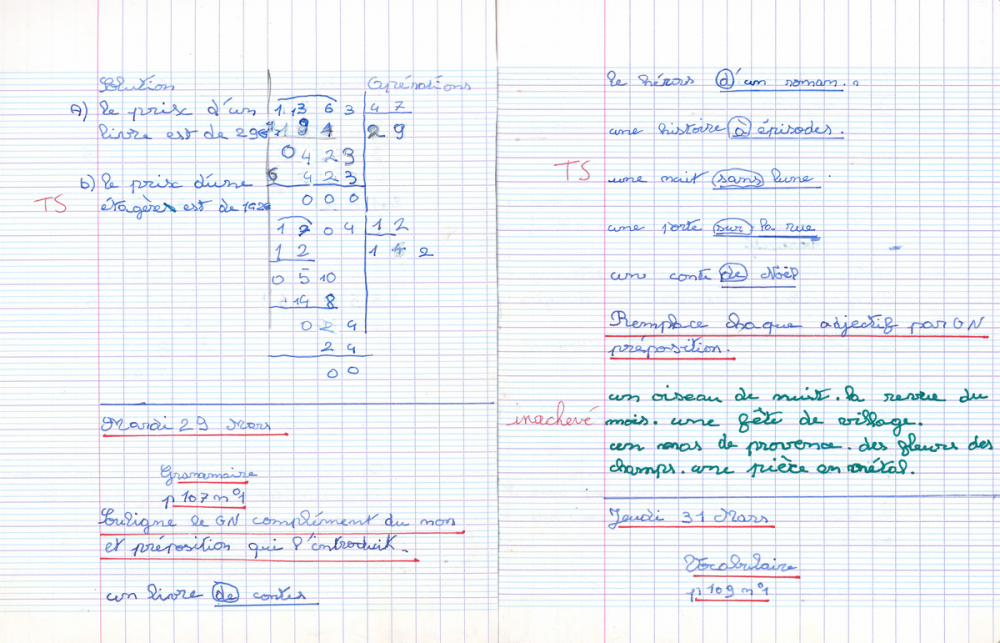 Solution
Opérations
A) le prix d'un
livre est de 29
b) le prix d'une
TS
étagères est de 142
1 1 3 6 3 | 4 7
1 9 4 | 2 9
0 4 2 3
4 2 3
0 0 0
1 7 0 4 | 1 2
1 2 | 1 4 2
0 5 10
14 8
0 2 4
2 4
0 0
Mardi 29 Mars
Grammaire
p 107 n°1
Souligne le GN complément du nom
et préposition qui l'introduit.
un livre de contes
le héros d'un roman.
une histoire à épisodes.
TS
une nuit sans lune.
une porte sur la rue
un conte de Noël
Remplace chaque adjectif par GN
préposition.
un oiseau de nuit. la revue du
inachevé
mois. une fête de village.
un mas de provence. des fleurs des
champs. une pièce en métal.
Jeudi 31 Mars
Vocabulaire
p 109 n°1